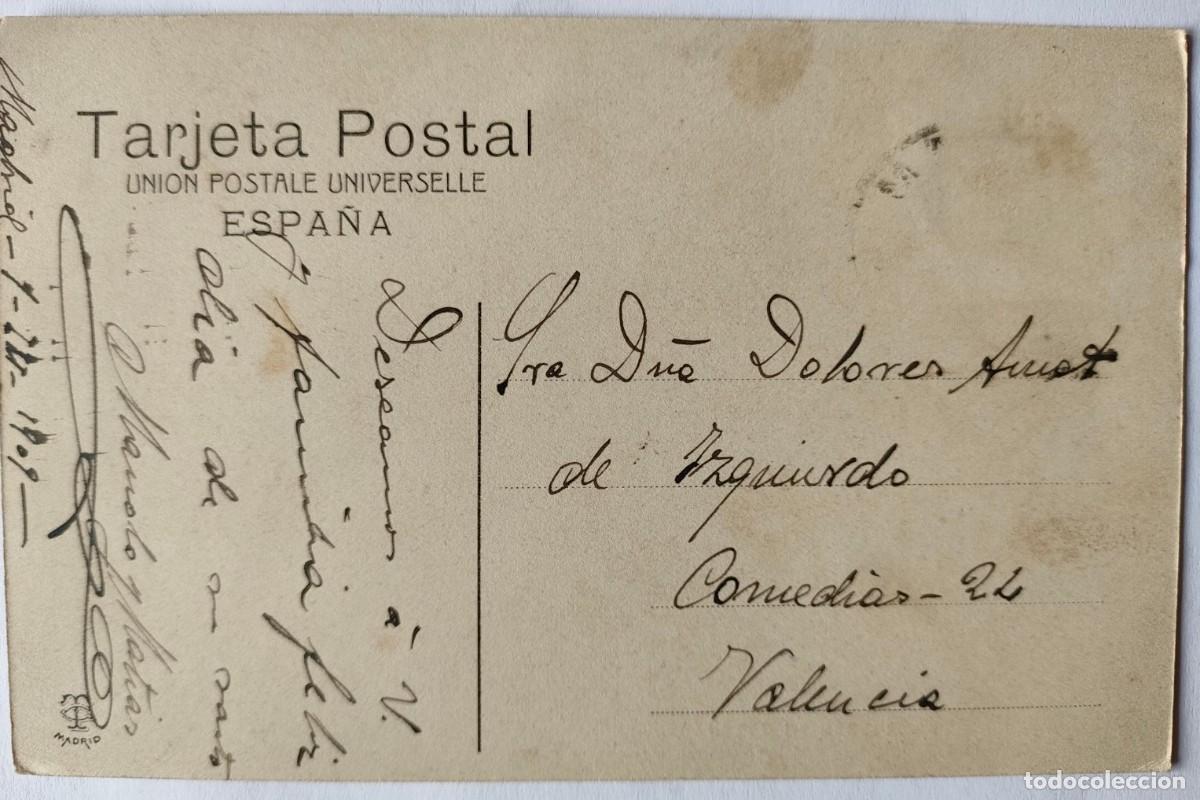 Tarjeta Postal
UNION POSTALE UNIVERSELLE
ESPAÑA
Madrid - 7-IV-1909-
Deseamos à V.
y familia feliz
dia de su santo
Manolo y Matias
Sra Dña Dolores Amat
de Izquierdo
Comedias - 22
Valencia
MADRID
todocoleccion